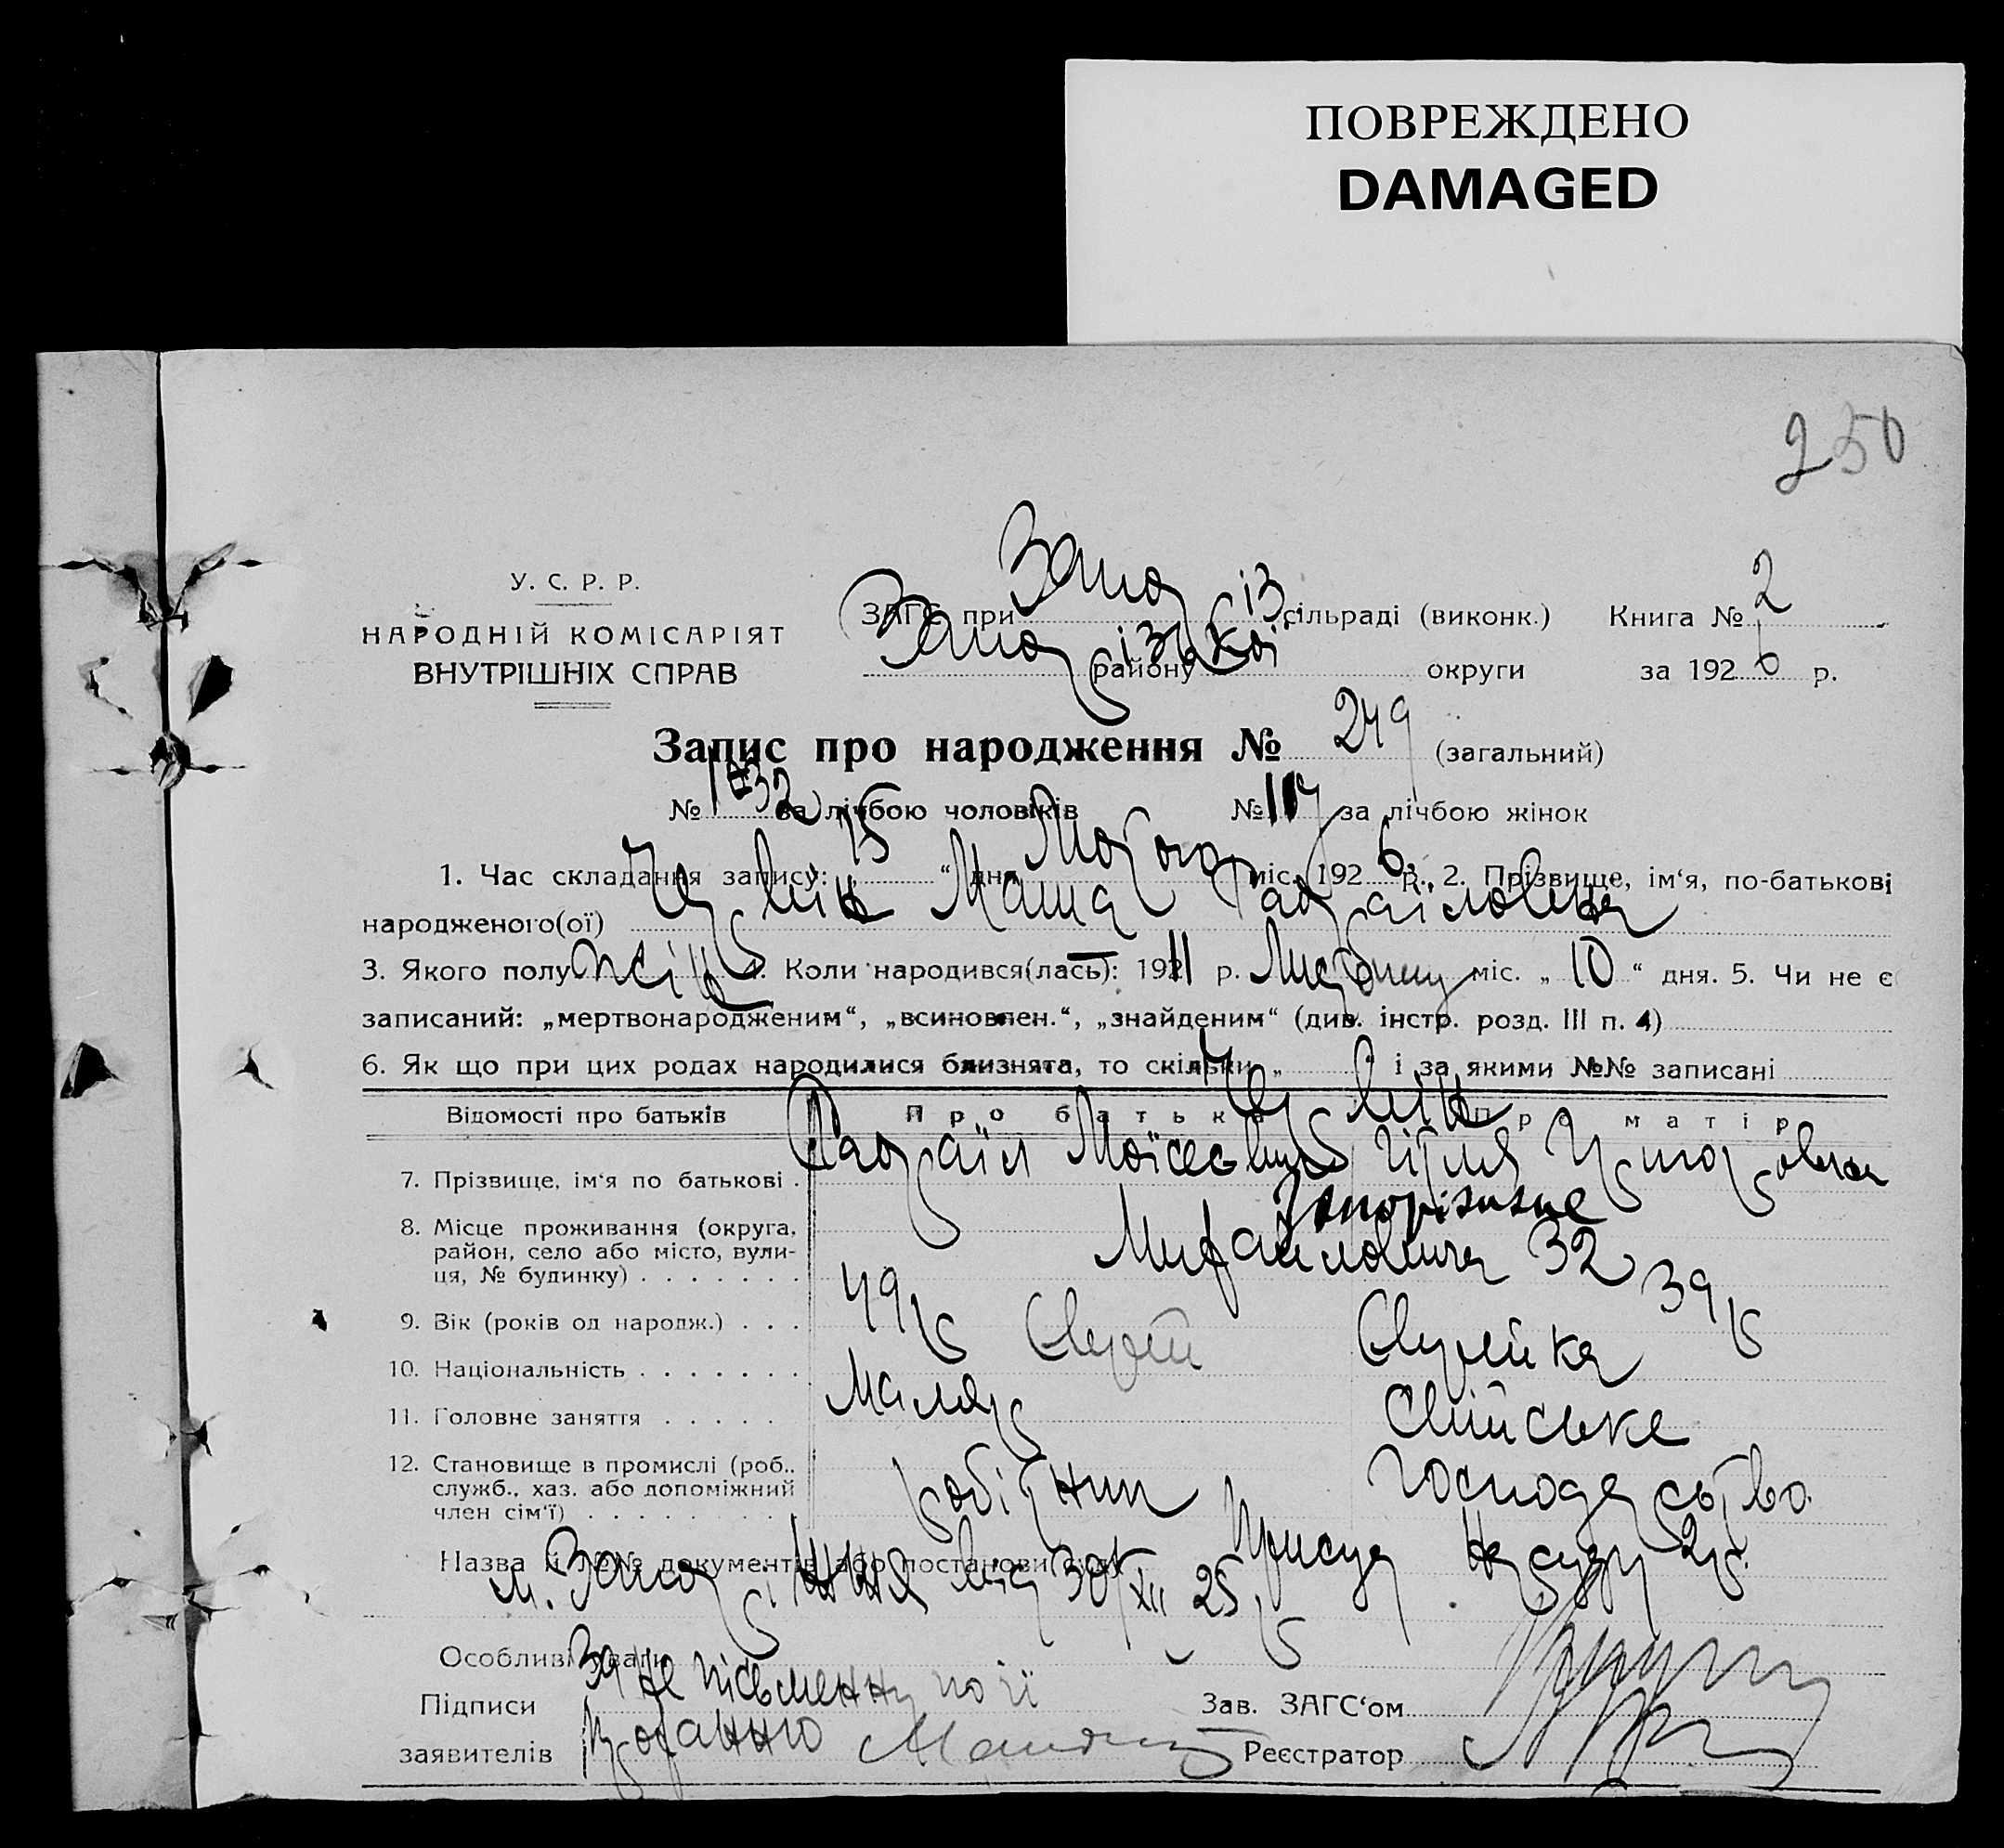 ПОВРЕЖДЕНО
DAMAGED
250
У. С. Р. Р.
НАРОДНІЙ КОМІСАРІЯТ
ВНУТРІШНІХ СПРАВ
ЗАГС при Запоріз. сільраді (виконк.) Книга № 2
Запорізької району округи за 1926 р.
Запис про народження № 249 (загальний)
№ 132 за лічбою чоловіків № 117 за лічбою жінок
1. Час складання запису: „15“ дня Лютого міс. 1926 р. 2. Прізвище, ім‘я, по-батькові
народженого(ої) Маша Рафаїловна
3. Якого полу жін 4. Коли народився(лась): 1911 р. міс. „10“ дня. 5. Чи не є
записаний: „мертвонародженим“, „всиновлен.“, „знайденим“ (див. інстр. розд. III п. 4)
6. Як що при цих родах народилися близнята, то скільки „ “ і за якими №№ записані
Відомості про батьків Про батька Про матір
7. Прізвище, ім‘я по батькові . Рафаїл Моїсеєвич
8. Місце проживання (округа, район, село або місто, вулиця, № будинку) . . . . . . . Запоріжжє
32
9. Вік (років од народж.) . . . 49 р 39 р
10. Національність . . . . . . . Єврей Єврейка
11. Головне заняття . . . . . Маляр
12. Становище в промислі (роб., служб., хаз. або допоміжний член сім‘ї) . . . . . . . . робітник господарство
Назва й №№ документів або постанови суду Присуд Нарсуду 2 р.
м. Запоріжжя від 30/XII 25 р
Особливі уваги За не пісьменну по її
Підписи Зав. ЗАГС‘ом
заявителів проханню Реєстратор